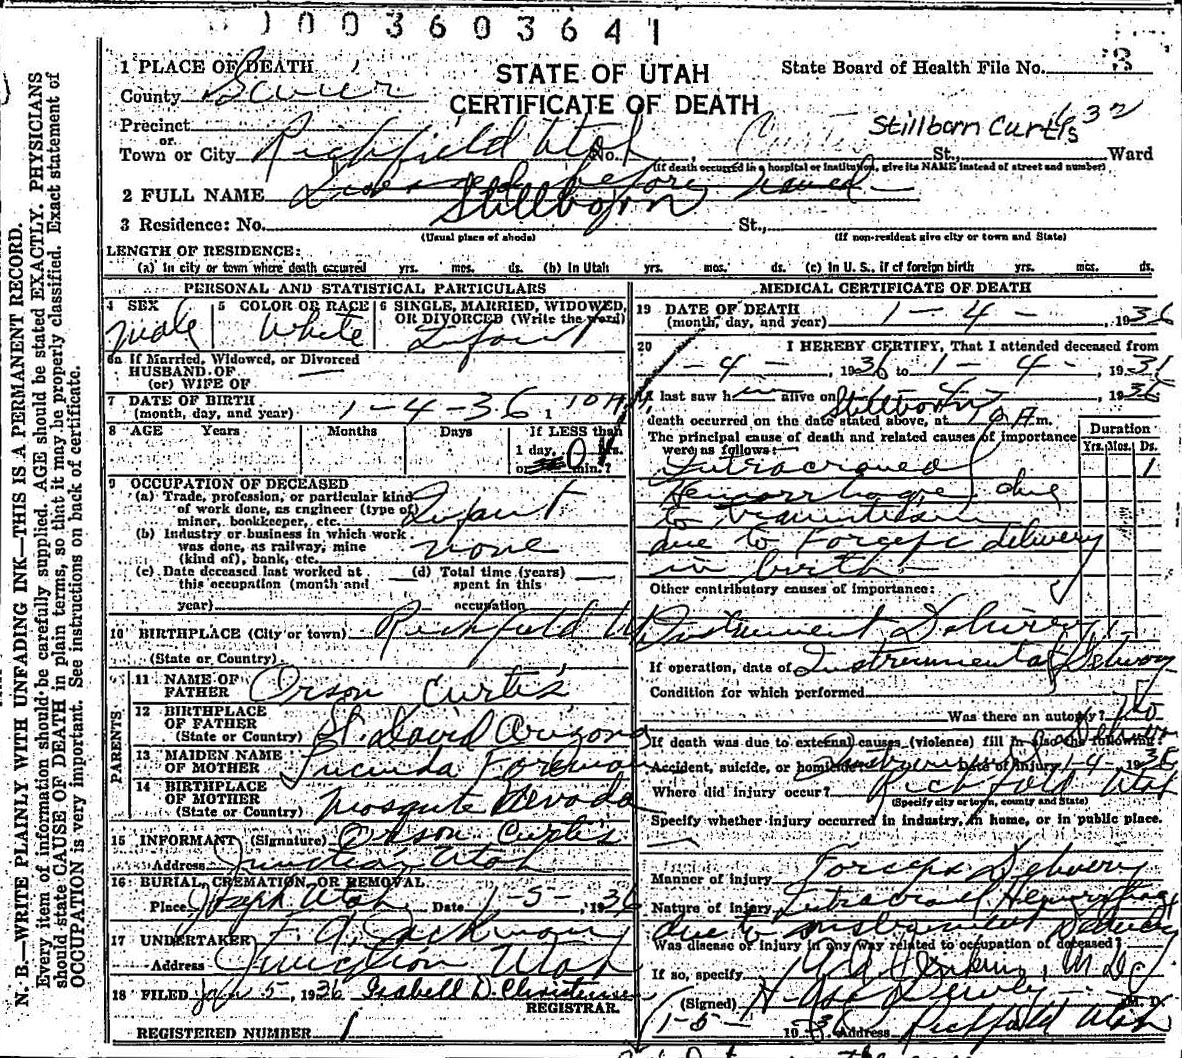 1003603641
3
1 PLACE OF DEATH
STATE OF UTAH
State Board of Health File No.
County Sevier
CERTIFICATE OF DEATH
Precinct
or
Stillborn Curtis
Town or City Richfield Utah No. St., Ward
(If death occurred in a hospital or institution, give its NAME instead of street and number)
2 FULL NAME before named
Stillborn
3 Residence: No. St.,
(Usual place of abode) (If non-resident give city or town and State)
LENGTH OF RESIDENCE:
(a) In city or town where death occurred yrs. mos. ds. (b) In Utah yrs. mos. ds. (c) In U. S., if of foreign birth yrs. mos. ds.
PERSONAL AND STATISTICAL PARTICULARS
4 SEX 5 COLOR OR RACE 6 SINGLE, MARRIED, WIDOWED, OR DIVORCED (Write the word)
Male White Infant
6a If Married, Widowed, or Divorced
HUSBAND OF
(or) WIFE OF
7 DATE OF BIRTH
(month, day, and year) 1-4-36
8 AGE Years Months Days If LESS than
1 day, 0 hrs.
or min.?
9 OCCUPATION OF DECEASED
(a) Trade, profession, or particular kind
of work done, as engineer (type of)
miner, bookkeeper, etc. Infant
(b) Industry or business in which work
was done, as railway, mine
(kind of), bank, etc. none
(c) Date deceased last worked at
this occupation (month and
year)
(d) Total time (years)
spent in this
occupation
10 BIRTHPLACE (City or town) Richfield
(State or Country)
PARENTS
11 NAME OF
FATHER Orson Curtis
12 BIRTHPLACE
OF FATHER
(State or Country) St. David Arizona
13 MAIDEN NAME
OF MOTHER Lucinda Foreman
14 BIRTHPLACE
OF MOTHER
(State or Country) Mosquite Nevada
15 INFORMANT (Signature) Orson Curtis
Address Junction Utah
16 BURIAL, CREMATION, OR REMOVAL
Place Joseph Utah Date 1-5-, 1936
17 UNDERTAKER
Address Junction Utah
18 FILED Jan 5, 1936 Isabell D. Christensen
REGISTRAR.
REGISTERED NUMBER 1
MEDICAL CERTIFICATE OF DEATH
19 DATE OF DEATH
(month, day, and year) 1-4-, 1936
20 I HEREBY CERTIFY, That I attended deceased from
1-4-, 1936 to 1-4-, 19
I last saw h alive on 1936
Stillborn
death occurred on the date stated above, at m.
The principal cause of death and related causes of importance
were as follows:
Duration
Yrs. Mos. Ds.
Intracranial 1
Hemorrhage due
to
due to Forceps delivery
in birth
Other contributory causes of importance:
Instrument Delivery
If operation, date of Instrumental Delivery
Condition for which performed
Was there an autopsy? No
If death was due to external causes (violence) fill in also the following:
Accident, suicide, or homicide? Date of injury 1-4-, 1936
Where did injury occur? Richfield Utah
(Specify city or town, county and State)
Specify whether injury occurred in industry, in home, or in public place.
Manner of injury Forceps Delivery
Nature of injury Intracranial Hemorrhage
due to instrument Delivery
Was disease or injury in any way related to occupation of deceased?
If so, specify
(Signed) M. D.
1-5- 1936 Address Richfield Utah
N. B.—WRITE PLAINLY WITH UNFADING INK—THIS IS A PERMANENT RECORD.
Every item of information should be carefully supplied. AGE should be stated EXACTLY. PHYSICIANS
should state CAUSE OF DEATH in plain terms, so that it may be properly classified. Exact statement of
OCCUPATION is very important. See instructions on back of certificate.